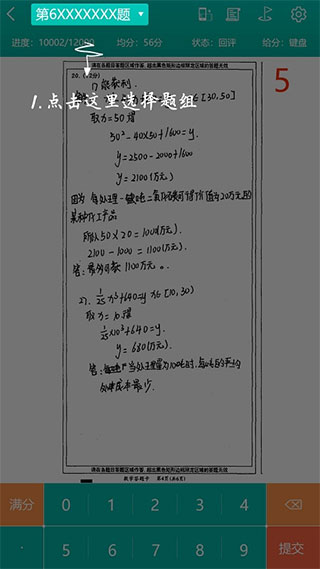 第6XXXXXXX题
进度：10002/12000 均分：56分 状态：回评 给分：键盘
请在各题目答题区域作答，超出黑色矩形边框限定区域的答题无效
5
20. (12分)
1) 能获利.
1.点击这里选择题组
[30,50]
取x=50 增
50²-40×50+1600=y.
y=2500-2000+1600
y=2100(万元)
因为 每处理一吨二氧化碳可得价值为20万元的
某种化工产品
所以 50×20=1000(万元).
2100-1000=1100(万元).
答：最多可数1100万元。
2). 1/25 x³+640=y x∈[10,30)
取x=10 增
1/25×10³+640=y.
y=680(万元).
答：
处理成本最少.
请在各题目答题区域作答，超出黑色矩形边框限定区域的答题无效
数学答题卡 第4页(共6页)
满分 0 1 2 3 4
· 5 6 7 8 9 提交